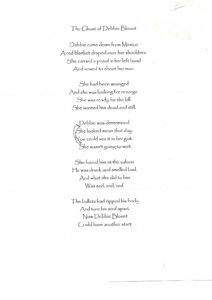 The Ghost of Debbie Blount
Debbie came down from Mexico
A red blanket draped over her shoulders.
She carried a pistol in her left hand
And vowed to shoot her man.
She had been wronged
And she was looking for revenge
She was ready for the kill
She wanted him dead and still.
Debbie was determined
She looked mean that day.
You could see it in her gait.
She wasn't going to wait.
She found him at the saloon
He was drunk and smelled bad.
And what she did to him
Was sad, sad, sad.
The bullets had ripped his body
And tore his soul apart.
Now Debbie Blount
Could have another start.